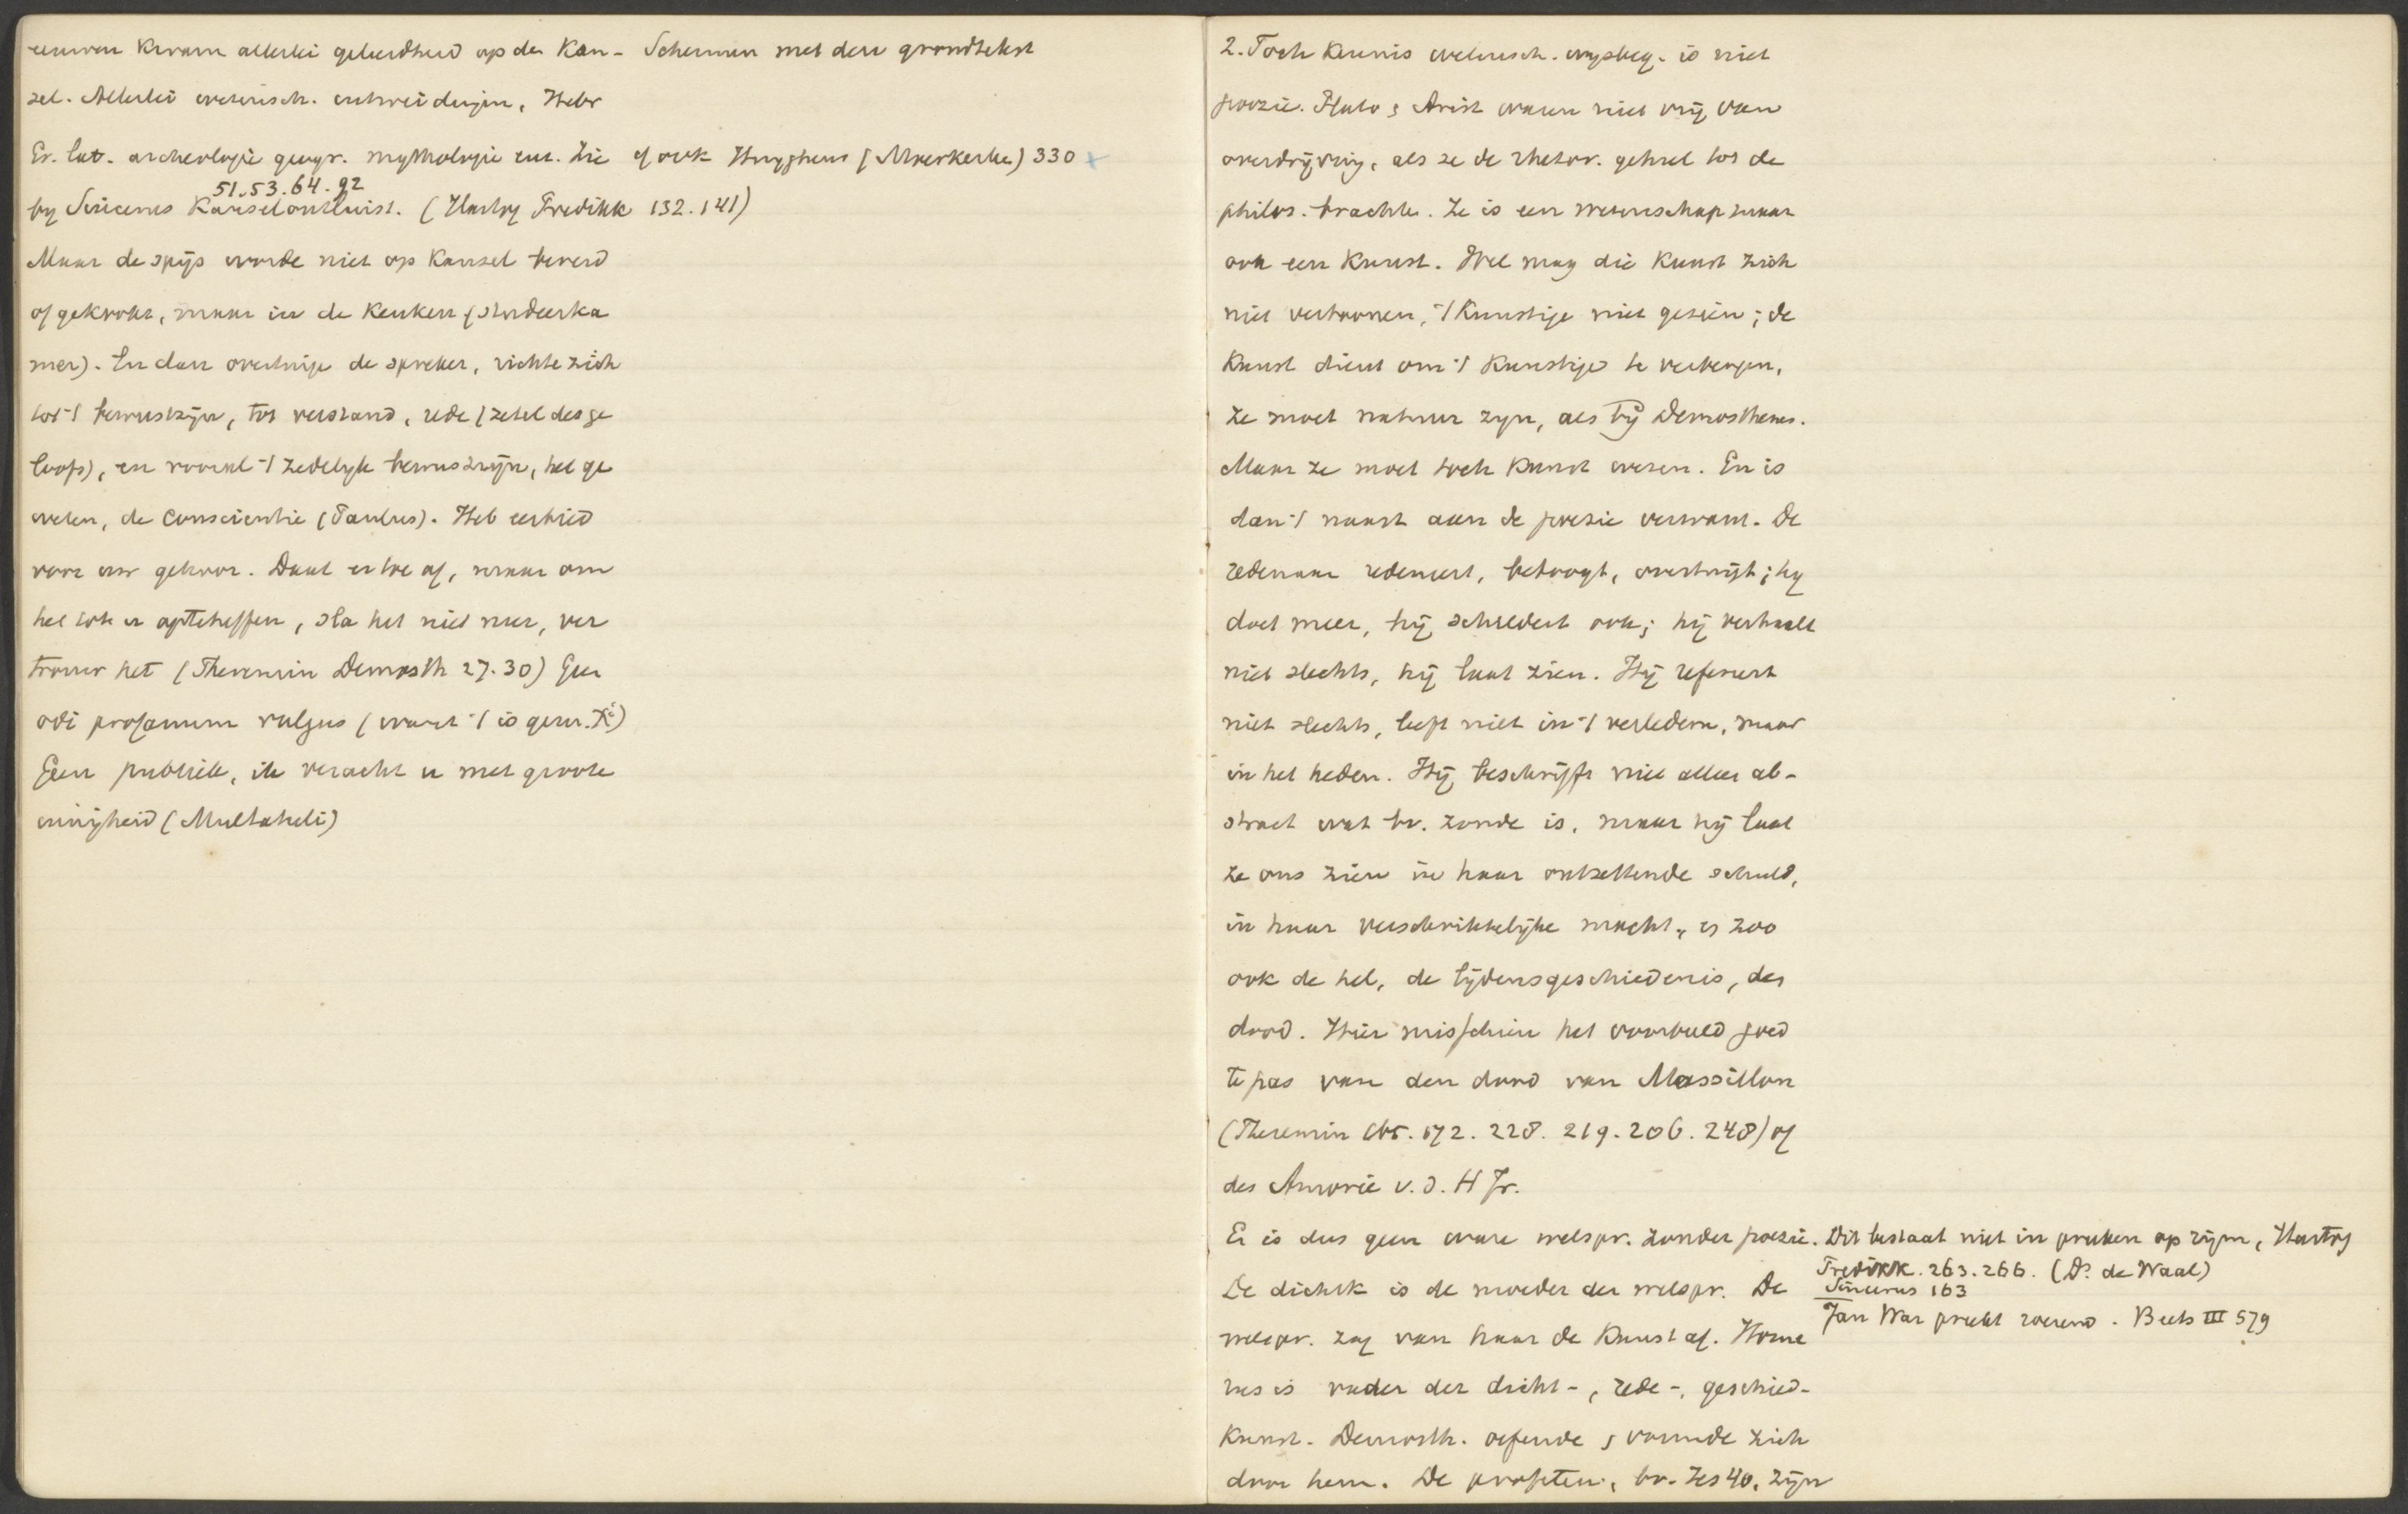 eeuwen kwam allerlei geleerdheid op den Kan- Schermen met den grondtekst
sel. Allerlei wetensch. uitweidingen, Hebr
Gr. Lat. archeologie geogr. mythologie enz. Zie of ook Huyghens (Moerkerke) 330 x
51.53.64.92
by Sincerus Kanselontluist. (Hartog Predikk 132.141)
Maar de spijs worde niet op Kansel bereid
of gekookt, maar in de Keuken (studeerka
mer). En dan overtuige de spreker, richte zich
tot 't bewustzijn, tot verstand, rede (zetel des ge
loofs), en vooral 't zedelyk bewustzijn, het ge
weten, de conscientie (Paulus). Heb eerbied
voor uw gehoor. Daal er toe af, maar om
het tot u opteheffen, sla het niet neer, ver
trouw het (Theremin Demosth 27.30) Geen
odi profanum vulgus (want 't is gem. Xi)
Geen publiek, ik veracht u met groote
innigheid (Multatuli)
2. Toch Kennis wetensch. wysbeg. is niet
poezie. Plato & Arist waren niet vrij van
overdrijving, als ze de rhetor. geheel tot de
philos. brachten. Ze is een wetenschap maar
ook een Kunst. Wel mag die Kunst zich
niet vertoonen, 't Kunstige niet gezien; de
Kunst dient om 't Kunstige te verbergen,
ze moet natuur zyn, als bij Demosthenes.
Maar ze moet toch Kunst wezen. En is
dan 't naast aan de poezie verwant. De
redenaar redeneert, betoogt, overtuigt; hy
doet meer, hij schildert ook; hij verhaalt
niet slechts, hij laat zien. Hij refereert
niet slechts, leeft niet in 't verleden, maar
in het heden. Hij beschrijft niet alleen ab-
stract wat bv. zonde is, maar hij laat
ze ons zien in haar ontzettende schuld,
in haar verschrikkelijke macht, & zoo
ook de hel, de lijdensgeschiedenis, den
dood. Hier misschien het voorbeeld goed
te pas van den dood van Massillon
(Theremin bl. 172. 228. 219. 206. 248) of
des v. d. H Jr.
Er is dus geen ware welspr. zonder poezie. Dit bestaat niet in preken op rijm, Hartog
Predikk. 263.266. (Ds. de Waal)
De dichtk is de moeder der welspr. De Sincerus 163
Jan War preekt roerend. Beets III 579
welspr. zag van haar de Kunst af. Home
rus is vader der dicht-, rede-, geschied-
Kunst. Demosth. oefende & vormde zich
door hem. De profeten, bv. Jes 40, zijn